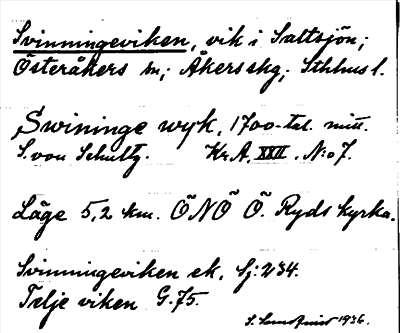 Svinningeviken, vik i Saltsjön;
Österåkers sn; Åkers skg; Sthlms l.
Swininge wyk, 1700-tal. mitt.
S. von Schultz. Kr.A. XXII. N:o 7.
Läge 5,2 km. ÖNÖ Ö. Ryds kyrka.
Svinningeviken ek. Sj: 234.
Telje viken G. 75.
1936.